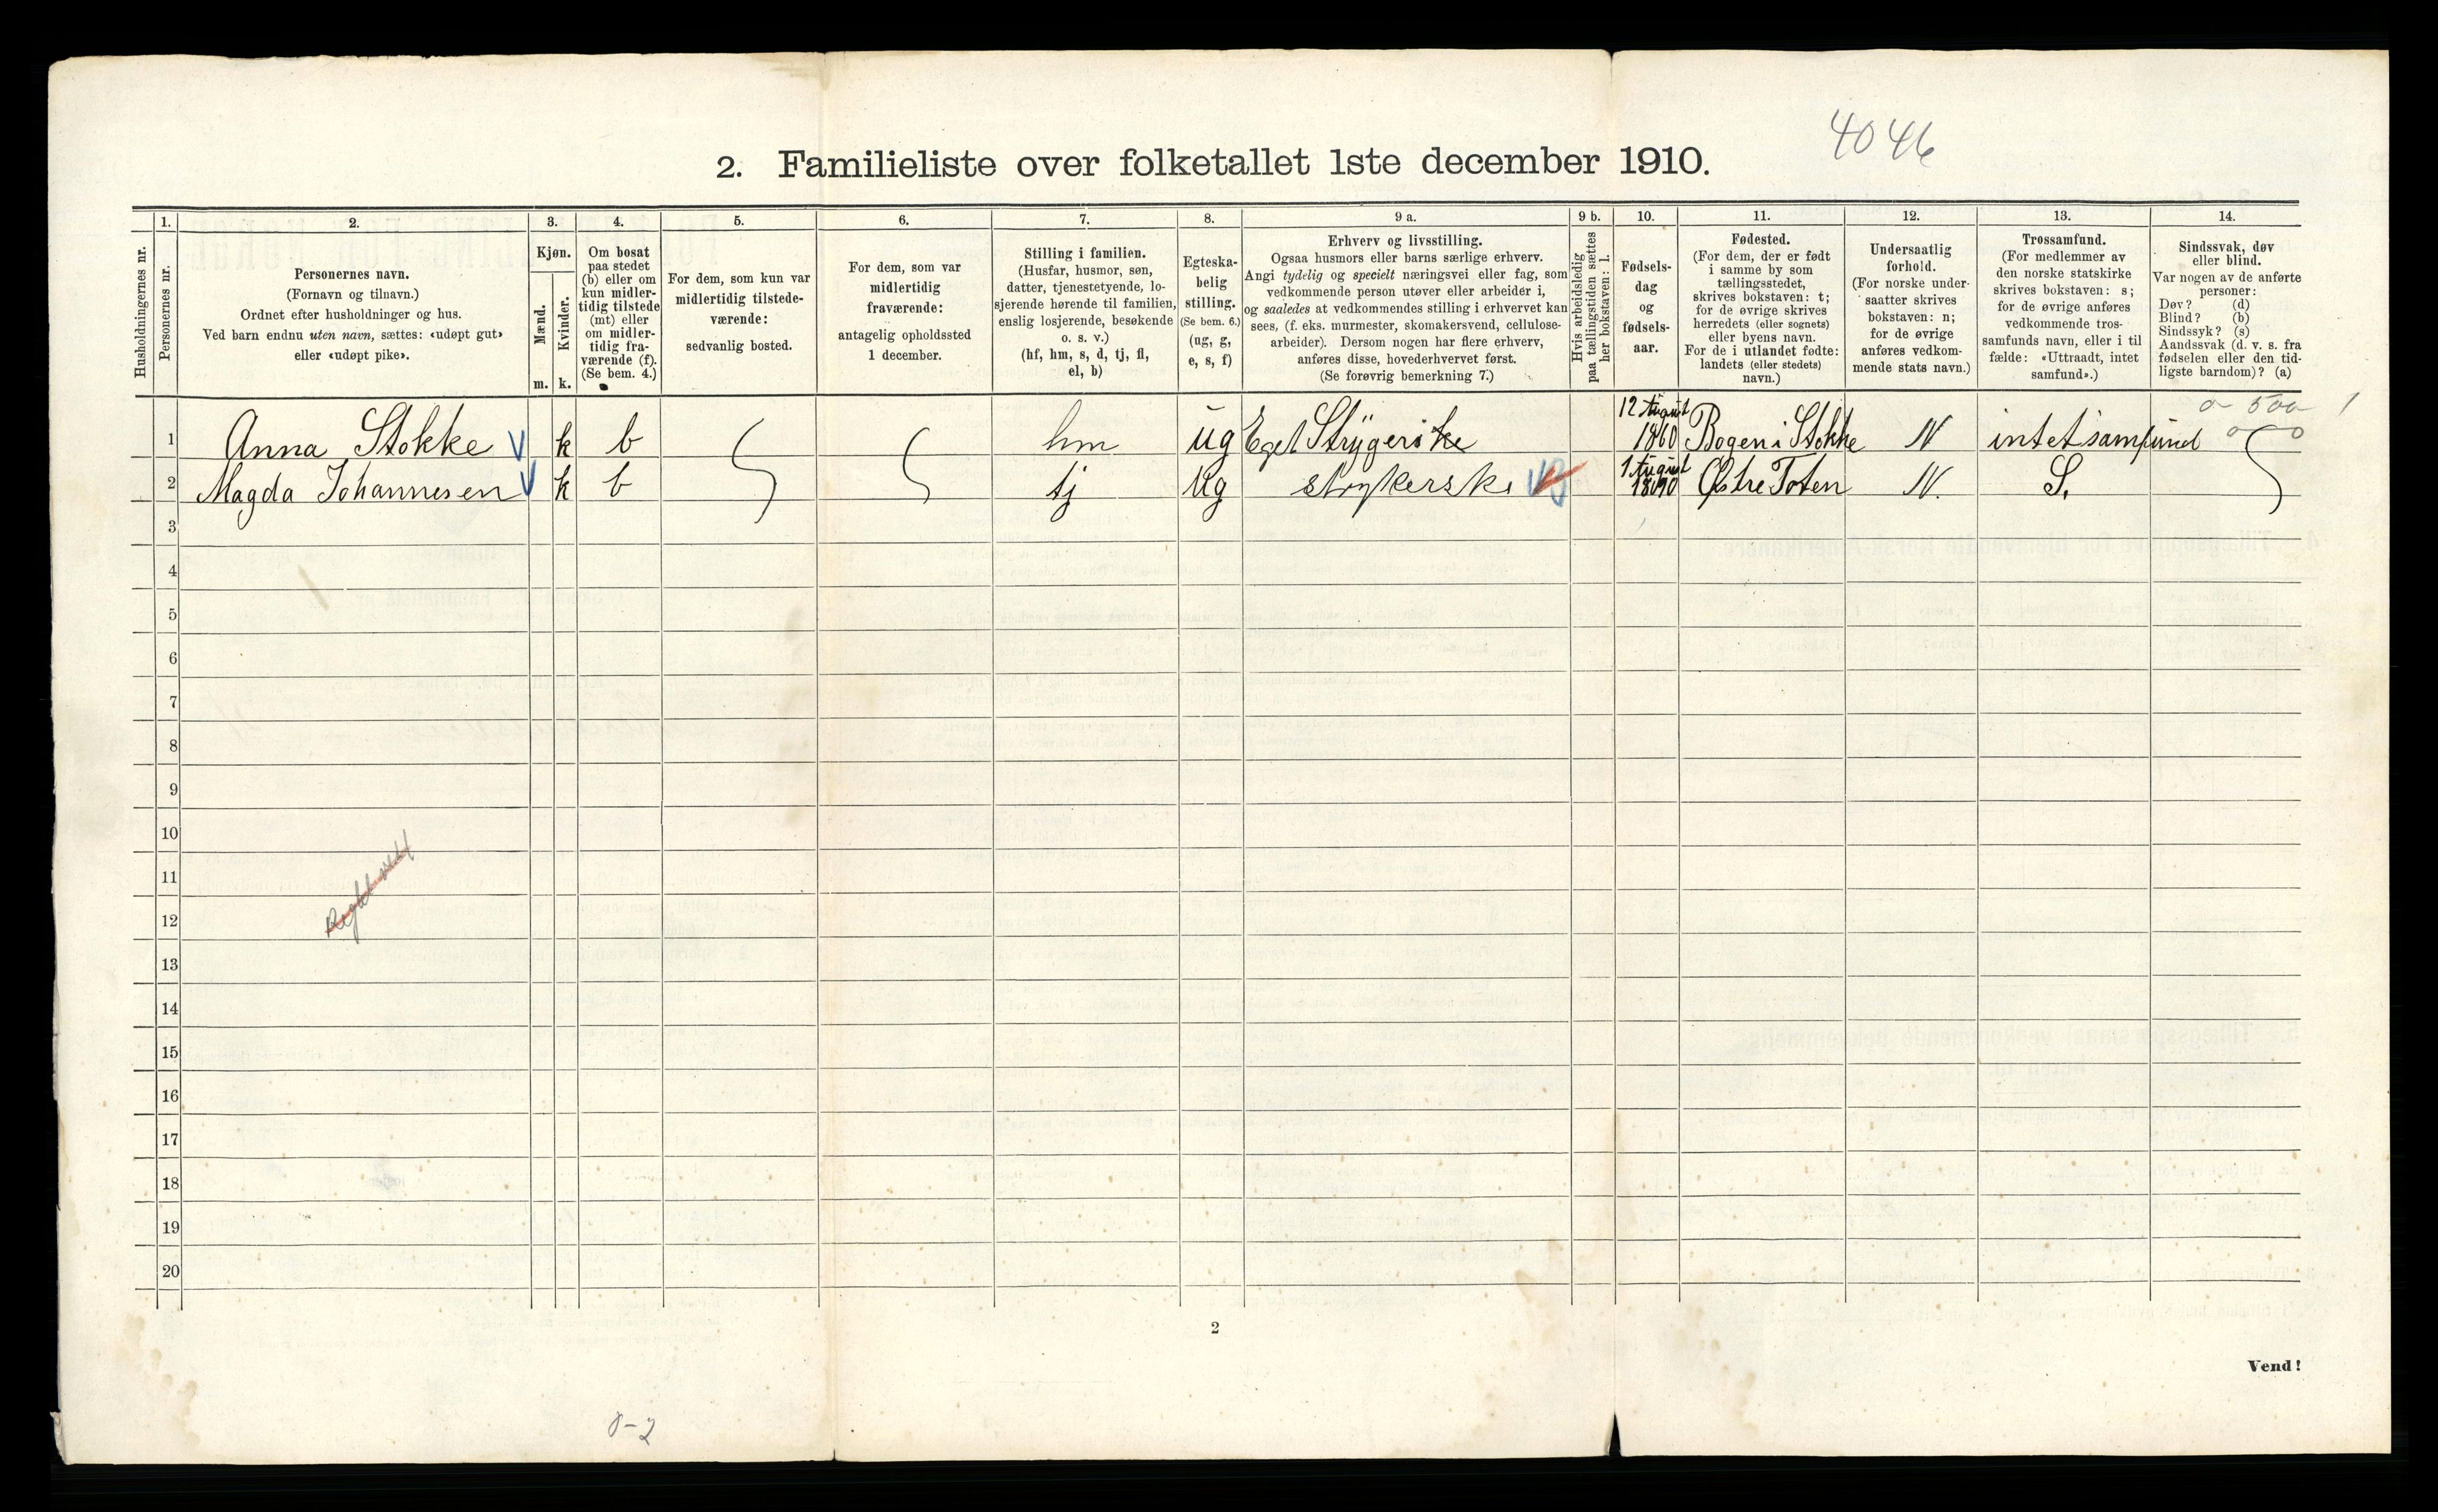 4046
2. Familieliste over folketallet 1ste december 1910.
Husholdningernes nr.
1.
Personernes nr.
2.
Personernes navn.
(Fornavn og tilnavn.)
Ordnet efter husholdninger og hus.
Ved barn endnu uten navn, sættes: «udøpt gut»
eller «udøpt pike».
3.
Kjøn.
Mænd.
Kvinder.
m. k.
4.
Om bosat
paa stedet
(b) eller om
kun midler-
tidig tilstede
(mt) eller
om midler-
tidig fra-
værende (f).
(Se bem. 4.)
5.
For dem, som kun var
midlertidig tilstede-
værende:
sedvanlig bosted.
6.
For dem, som var
midlertidig
fraværende:
antagelig opholdssted
1 december.
7.
Stilling i familien.
(Husfar, husmor, søn,
datter, tjenestetyende, lo-
sjerende hørende til familien,
enslig losjerende, besøkende
o. s. v.)
(hf, hm, s, d, tj, fl,
el, b)
8.
Egteska-
belig
stilling.
(Se bem. 6.)
(ug, g,
e, s, f)
9 a.
Erhverv og livsstilling.
Ogsaa husmors eller barns særlige erhverv.
Angi tydelig og specielt næringsvei eller fag, som
vedkommende person utøver eller arbeider i,
og saaledes at vedkommendes stilling i erhvervet kan
sees, (f. eks. murmester, skomakersvend, cellulose-
arbeider). Dersom nogen har flere erhverv,
anføres disse, hovederhvervet først.
(Se forøvrig bemerkning 7.)
9 b.
Hvis arbeidsledig
paa tællingstiden sættes
her bokstaven: l.
10.
Fødsels-
dag
og
fødsels-
aar.
11.
Fødested.
(For dem, der er født
i samme by som
tællingsstedet,
skrives bokstaven: t;
for de øvrige skrives
herredets (eller sognets)
eller byens navn.
For de i utlandet fødte:
landets (eller stedets)
navn.)
12.
Undersaatlig
forhold.
(For norske under-
saatter skrives
bokstaven: n;
for de øvrige
anføres vedkom-
mende stats navn.)
13.
Trossamfund.
(For medlemmer av
den norske statskirke
skrives bokstaven: s;
for de øvrige anføres
vedkommende tros-
samfunds navn, eller i til
fælde: «Uttraadt, intet
samfund».)
14.
Sindssvak, døv
eller blind.
Var nogen av de anførte
personer:
Døv? (d)
Blind? (b)
Sindssyk? (s)
Aandssvak (d. v. s. fra
fødselen eller den tid-
ligste barndom)? (a)
1 Anna Stokke k b hm ug Eget Strygeriske 12 August 1860 Bogen i Stokke N intet samfund
2 Magda Johannesen k b tj Ug strykerske 1 August 1890 Østre Toten N. S.
3
4
5
6
7
8
9
10
11
12
13
14
15
16
17
18
19
20
2
Vend!
0-2